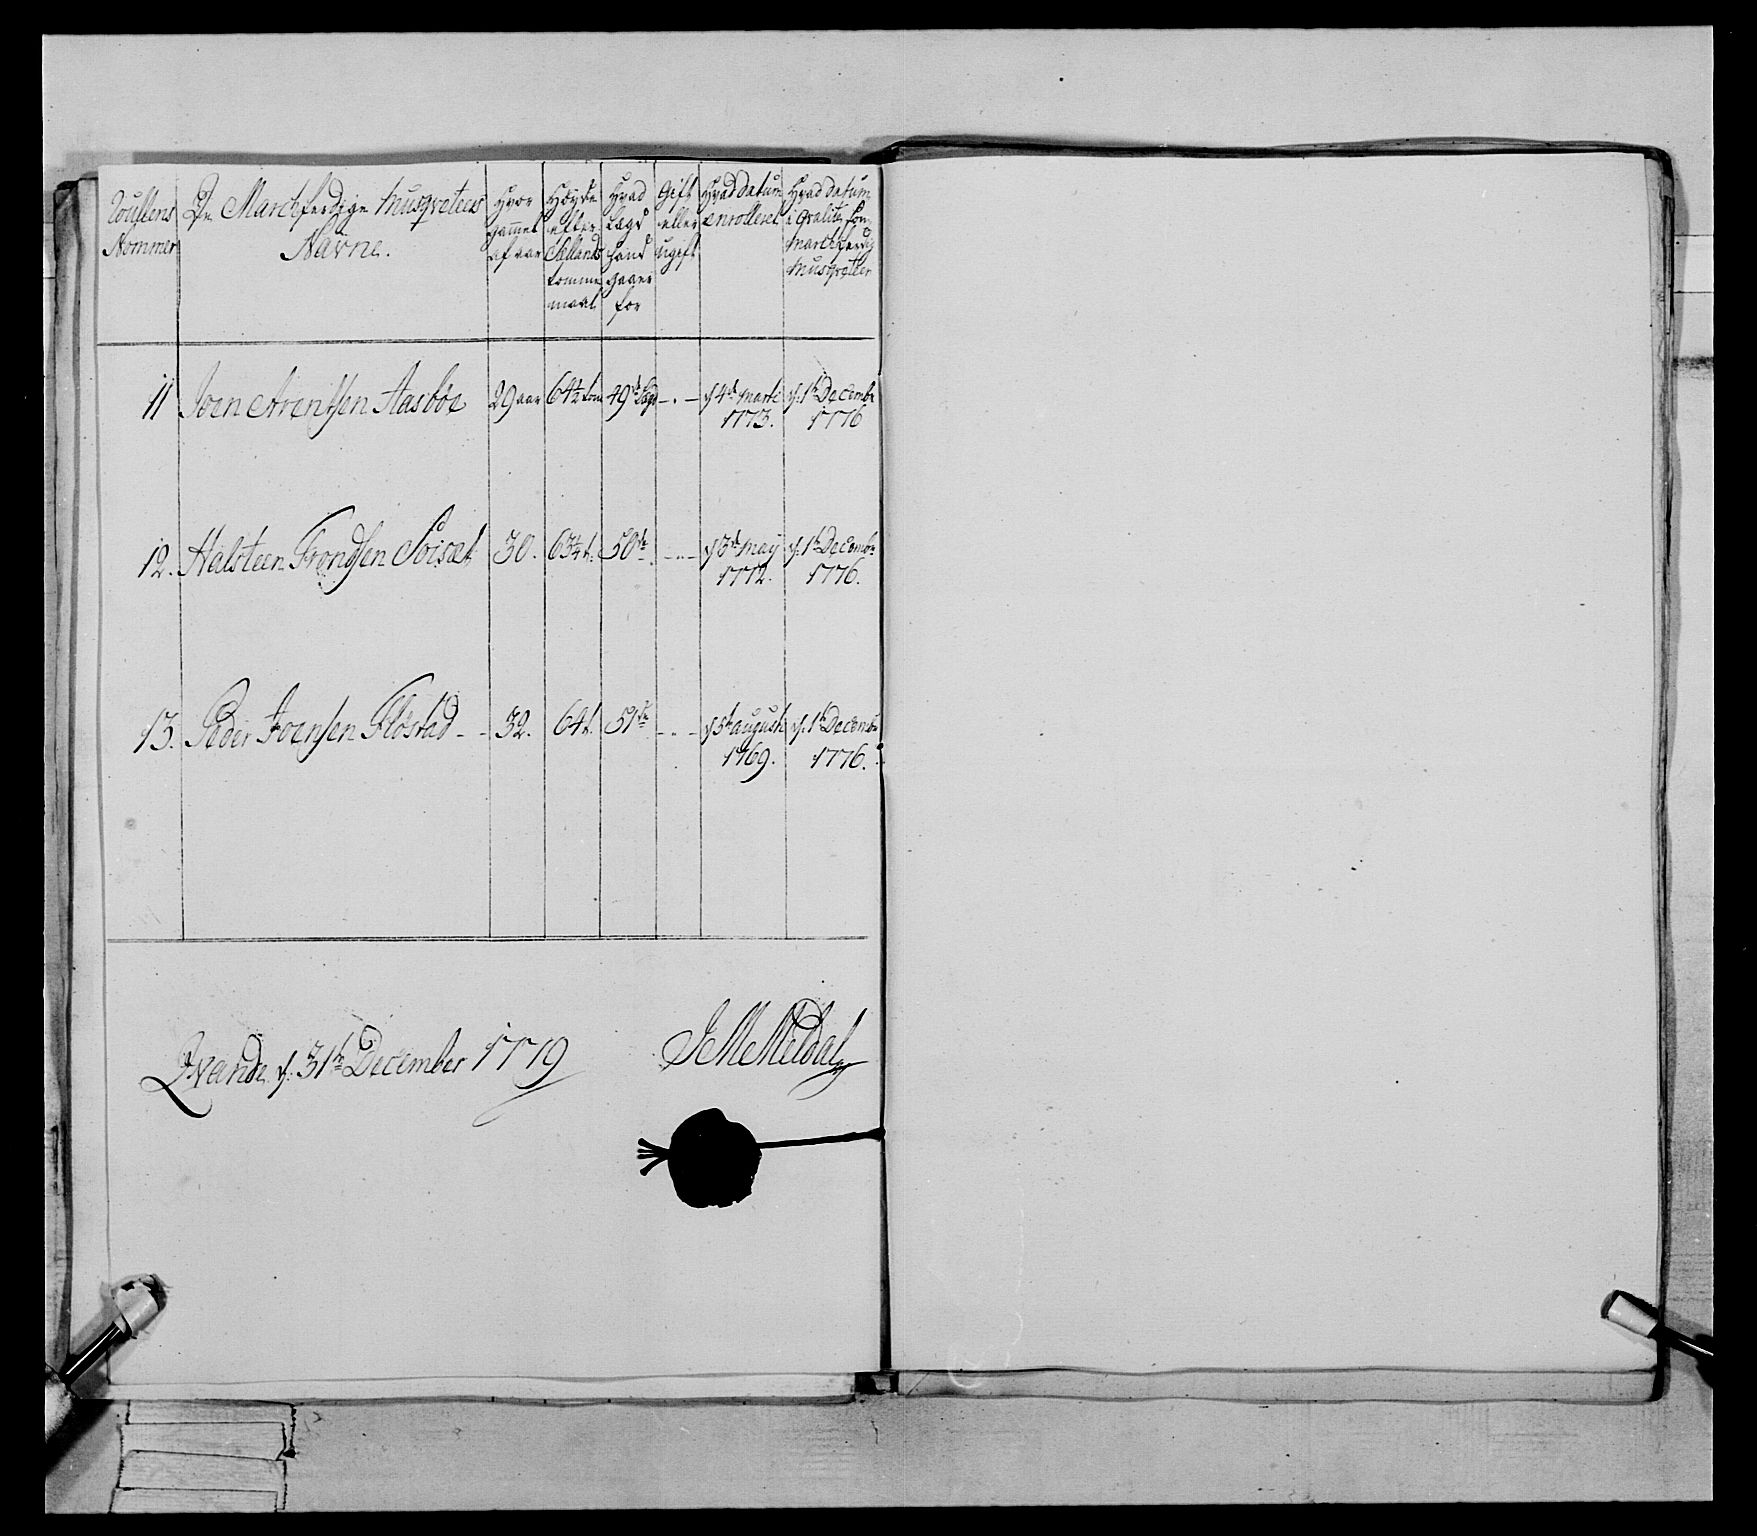 Roullens Nommer
De Marchferdige Musqveteers Navne.
Hvor gammel af aar
Høyde efter Siellands tomme maal
Hvad Lægd hand gaaer for
Gift eller ugift
Hvad Datum enrolleret
Hvad datum i Qvalitz som Marchferdig Musqveteer
11 Joen Arentsen Aasbøe 29 aar 64½ tom 49de Lægd -.- d 4de Marti 1773. d. 1te Decembr 1776
12. Halsteen Trondsen Soisæt 30. 63¼ t. 50de -..- d 3de May 1772. d. 1te Decembr 1776.
13. Peder Joensen Fløstad - - 32. 64 t. 51te -..- d 5te augusti 1769. d. 1te Decembr 1776.
Qvande d. 31te December 1779
JM Meldal